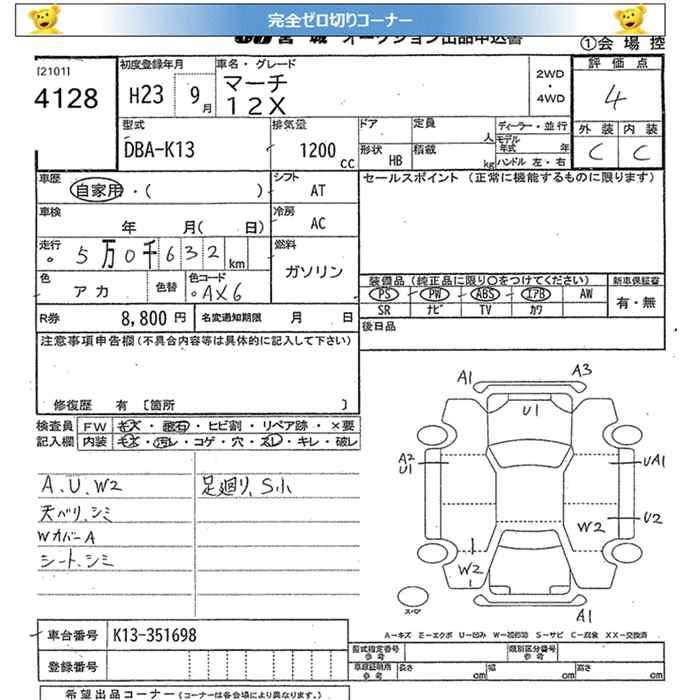 完全ゼロ切りコーナー
宮城 オークション出品申込書 ①会場控
[2101]
4128
初度登録年月
H23 9月
車名・グレード
マーチ
12X
2WD
・
4WD
評価点
4
外装 内装
C C
型式
DBA-K13
排気量
1200 cc
ドア
定員 人
ディーラー・並行
モデル年式 年
形状 HB
積載 kg
ハンドル 左・右
車歴
自家用・( )
シフト
AT
セールスポイント (正常に機能するものに限ります)
車検
年 月( 日)
冷房
AC
走行
5万0千632km
燃料
ガソリン
色
アカ
色替
色コード
AX6
装備品 (純正品に限り○をつけてください)
PS PW ABS エアB AW
SR ナビ TV カワ
新車保証書
有・無
R券 8,800円 名変通知期限 月 日
後日品
注意事項申告欄 (不具合内容等は具体的に記入して下さい)
修復歴 有 〔箇所 〕
検査員記入欄
FW キズ・飛石・ヒビ割・リペア跡・×要
内装 キズ・汚レ・コゲ・穴・スレ・キレ・破レ
A、U、W2
天ベリ、シミ
WカバーA
シート、シミ
足廻り、S小
A1 A3
U1
A2
U1
UA1
U2
W2
W2
A1
スペア
A-キズ E-エクボ U-凹み W-補修跡 S-サビ C-腐食 XX-交換済
車台番号 K13-351698
登録番号
型式指定番号
参考
類別区分番号
参考
車庫証明用
参考
長さ cm 幅 cm 高さ cm
希望出品コーナー (コーナーは各会場により異なります。)